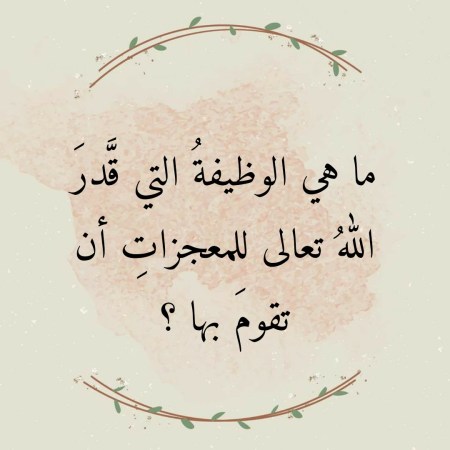 ما هي الوظيفةُ التي قَّدرَ
اللهُ تعالى للمعجزاتِ أن
تقومَ بها ؟